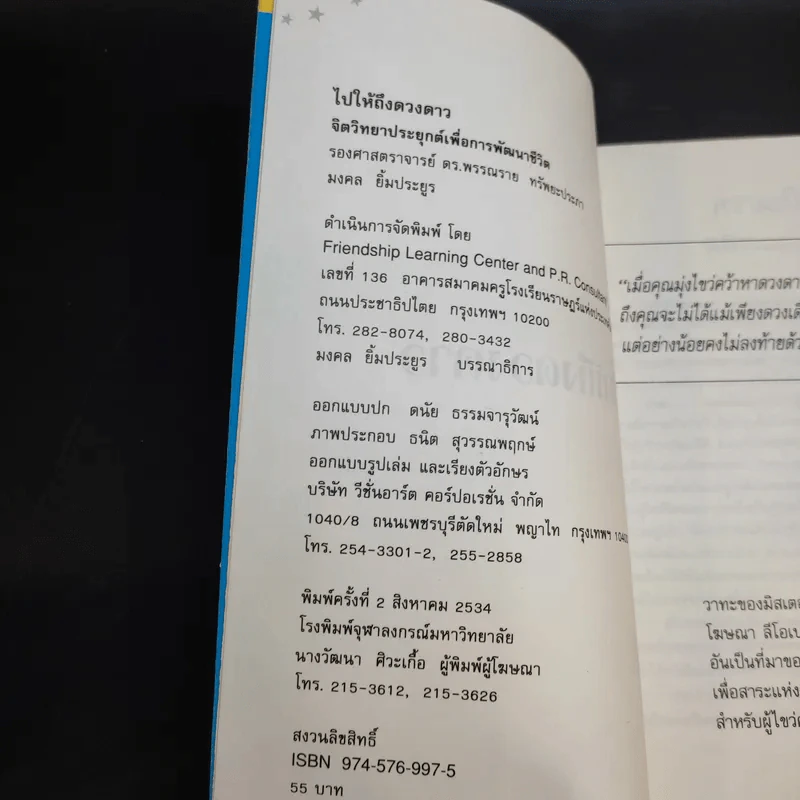 ไปให้ถึงดวงดาว
จิตวิทยาประยุกต์เพื่อการพัฒนาชีวิต
รองศาสตราจารย์ ดร.พรรณราย ทรัพยะประภา
มงคล ยิ้มประยูร
ดำเนินการจัดพิมพ์ โดย
Friendship Learning Center and P.R. Consultant
เลขที่ 136 อาคารสมาคมครูโรงเรียนราษฎร์แห่งประเทศ
ถนนประชาธิปไตย กรุงเทพฯ 10200
โทร. 282-8074, 280-3432
มงคล ยิ้มประยูร บรรณาธิการ
ออกแบบปก ดนัย ธรรมจารุวัฒน์
ภาพประกอบ ธนิต สุวรรณพฤกษ์
ออกแบบรูปเล่ม และเรียงตัวอักษร
บริษัท วีชั่นอาร์ต คอร์ปอเรชั่น จำกัด
1040/8 ถนนเพชรบุรีตัดใหม่ พญาไท กรุงเทพฯ 10400
โทร. 254-3301-2, 255-2858
พิมพ์ครั้งที่ 2 สิงหาคม 2534
โรงพิมพ์จุฬาลงกรณ์มหาวิทยาลัย
นางวัฒนา ศิวะเกื้อ ผู้พิมพ์ผู้โฆษณา
โทร. 215-3612, 215-3626
สงวนลิขสิทธิ์
ISBN 974-576-997-5
55 บาท
"เมื่อคุณมุ่งไขว่คว้าหาดวงดา
ถึงคุณจะไม่ได้แม้เพียงดวงเดี
แต่อย่างน้อยคงไม่ลงท้ายด้ว
วาทะของมิสเตอ
โฆษณา ลีโอเบ
อันเป็นที่มาขอ
เพื่อสาระแห่ง
สำหรับผู้ไขว่ค